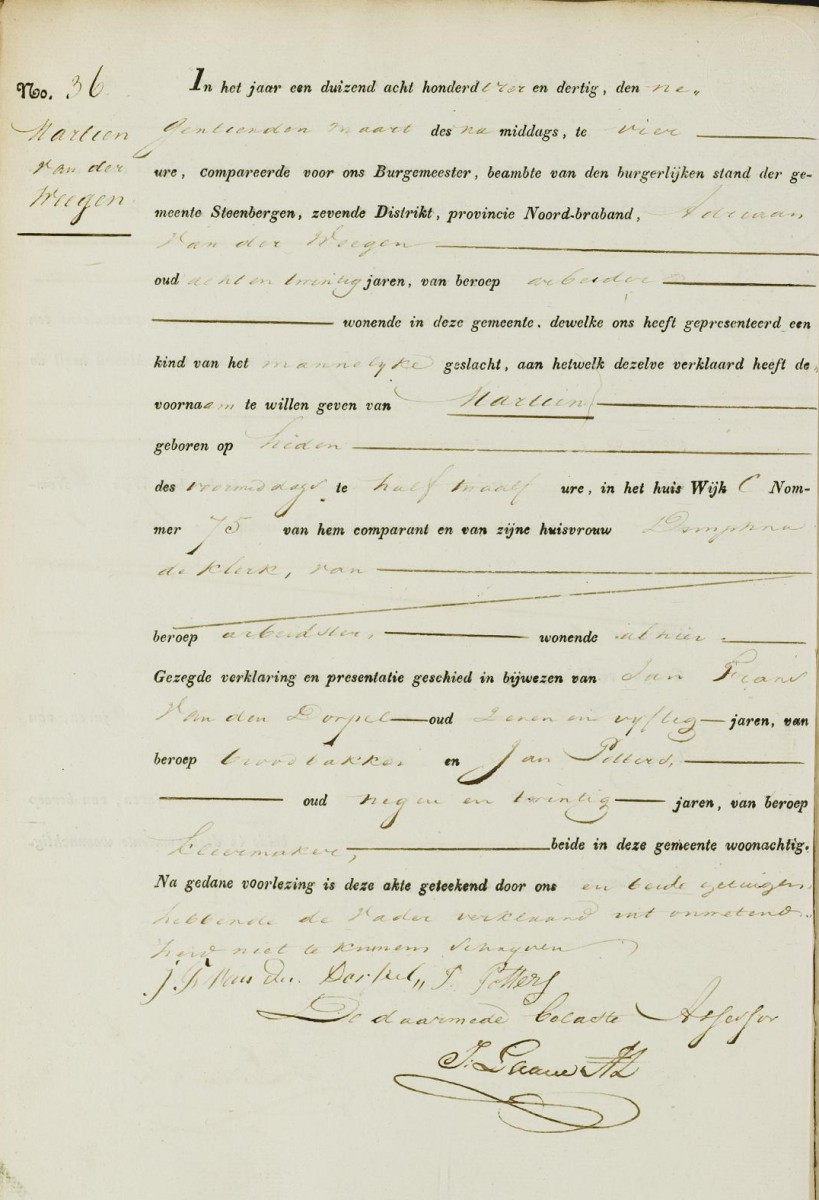 No. 36
Martien
van der
Weegen
In het jaar een duizend acht honderd vier en dertig, den ne„
gentienden maart des na middags, te vier
ure, compareerde voor ons Burgemeester, beambte van den burgerlijken stand der ge-
meente Steenbergen, zevende Distrikt, provincie Noord-braband, Adriaan
van der Weegen
oud acht en twintig jaren, van beroep arbeider
wonende in deze gemeente. dewelke ons heeft gepresenteerd een
kind van het mannelyke geslacht, aan hetwelk dezelve verklaard heeft de„
voornaam te willen geven van Martien
geboren op heden
des voormiddags te half twaalf ure, in het huis Wijk C Nom-
mer 75 van hem comparant en van zijne huisvrouw Dimphna
de Klerk, van
beroep arbeidster, wonende alhier
Gezegde verklaring en presentatie geschied in bijwezen van Jan Frans
van den Dorpel oud zeven en vyftig jaren, van
beroep broodbakker en Jan Potters,
oud negen en twintig jaren, van beroep
kleermaker, beide in deze gemeente woonachtig.
Na gedane voorlezing is deze akte geteekend door ons en beide getuigen
hebbende de vader verklaard uit onwetend„
heid niet te kunnen schryven
J. F. van den Dorpel„ J. Potters
De daarmede belaste Assessor